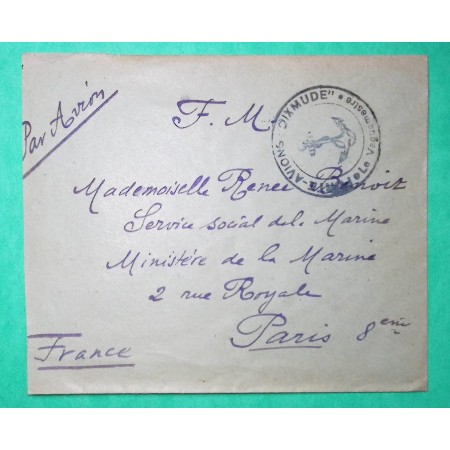 Par Avion
F. M.
PORTE-AVIONS "DIXMUDE" * Le Vaguemestre *
Mademoiselle Renee Benoit
Service social de la Marine
Ministére de la Marine
2 rue Royale
Paris 8eme
France